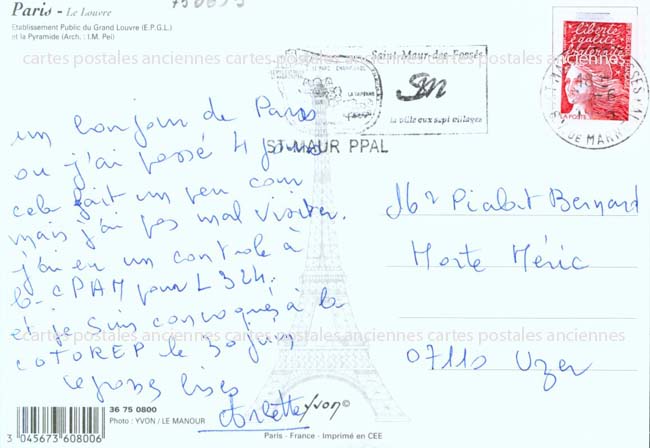 Paris - Le Louvre
Etablissement Public du Grand Louvre (E.P.G.L.)
et la Pyramide (Arch. : I.M. Pei)
cartes postales anciennes cartes postales anciennes cartes postales anciennes
Saint-Maur-des-Fossés
la ville aux sept villages
ST-MAUR PPAL
liberté
égalité
fraternité
LA POSTE
un bonjour de Paris
ou j'ai passé 4 jours
cela fait un peu cour
mais j'ai pas mal visiter.
j'ai eu un controle à
la CPAM pour L 324.
et je suis convoqués à la
COTOREP le 30 juin
bises
Arlette
Mr Pialat Bernard
Morte Méric
07110 Uzer
cartes postales anciennes cartes postales anciennes cartes postales anciennes
36 75 0800
Photo : YVON / LE MANOUR
3 045673 608006
Yvon ©
Paris - France - Imprimé en CEE